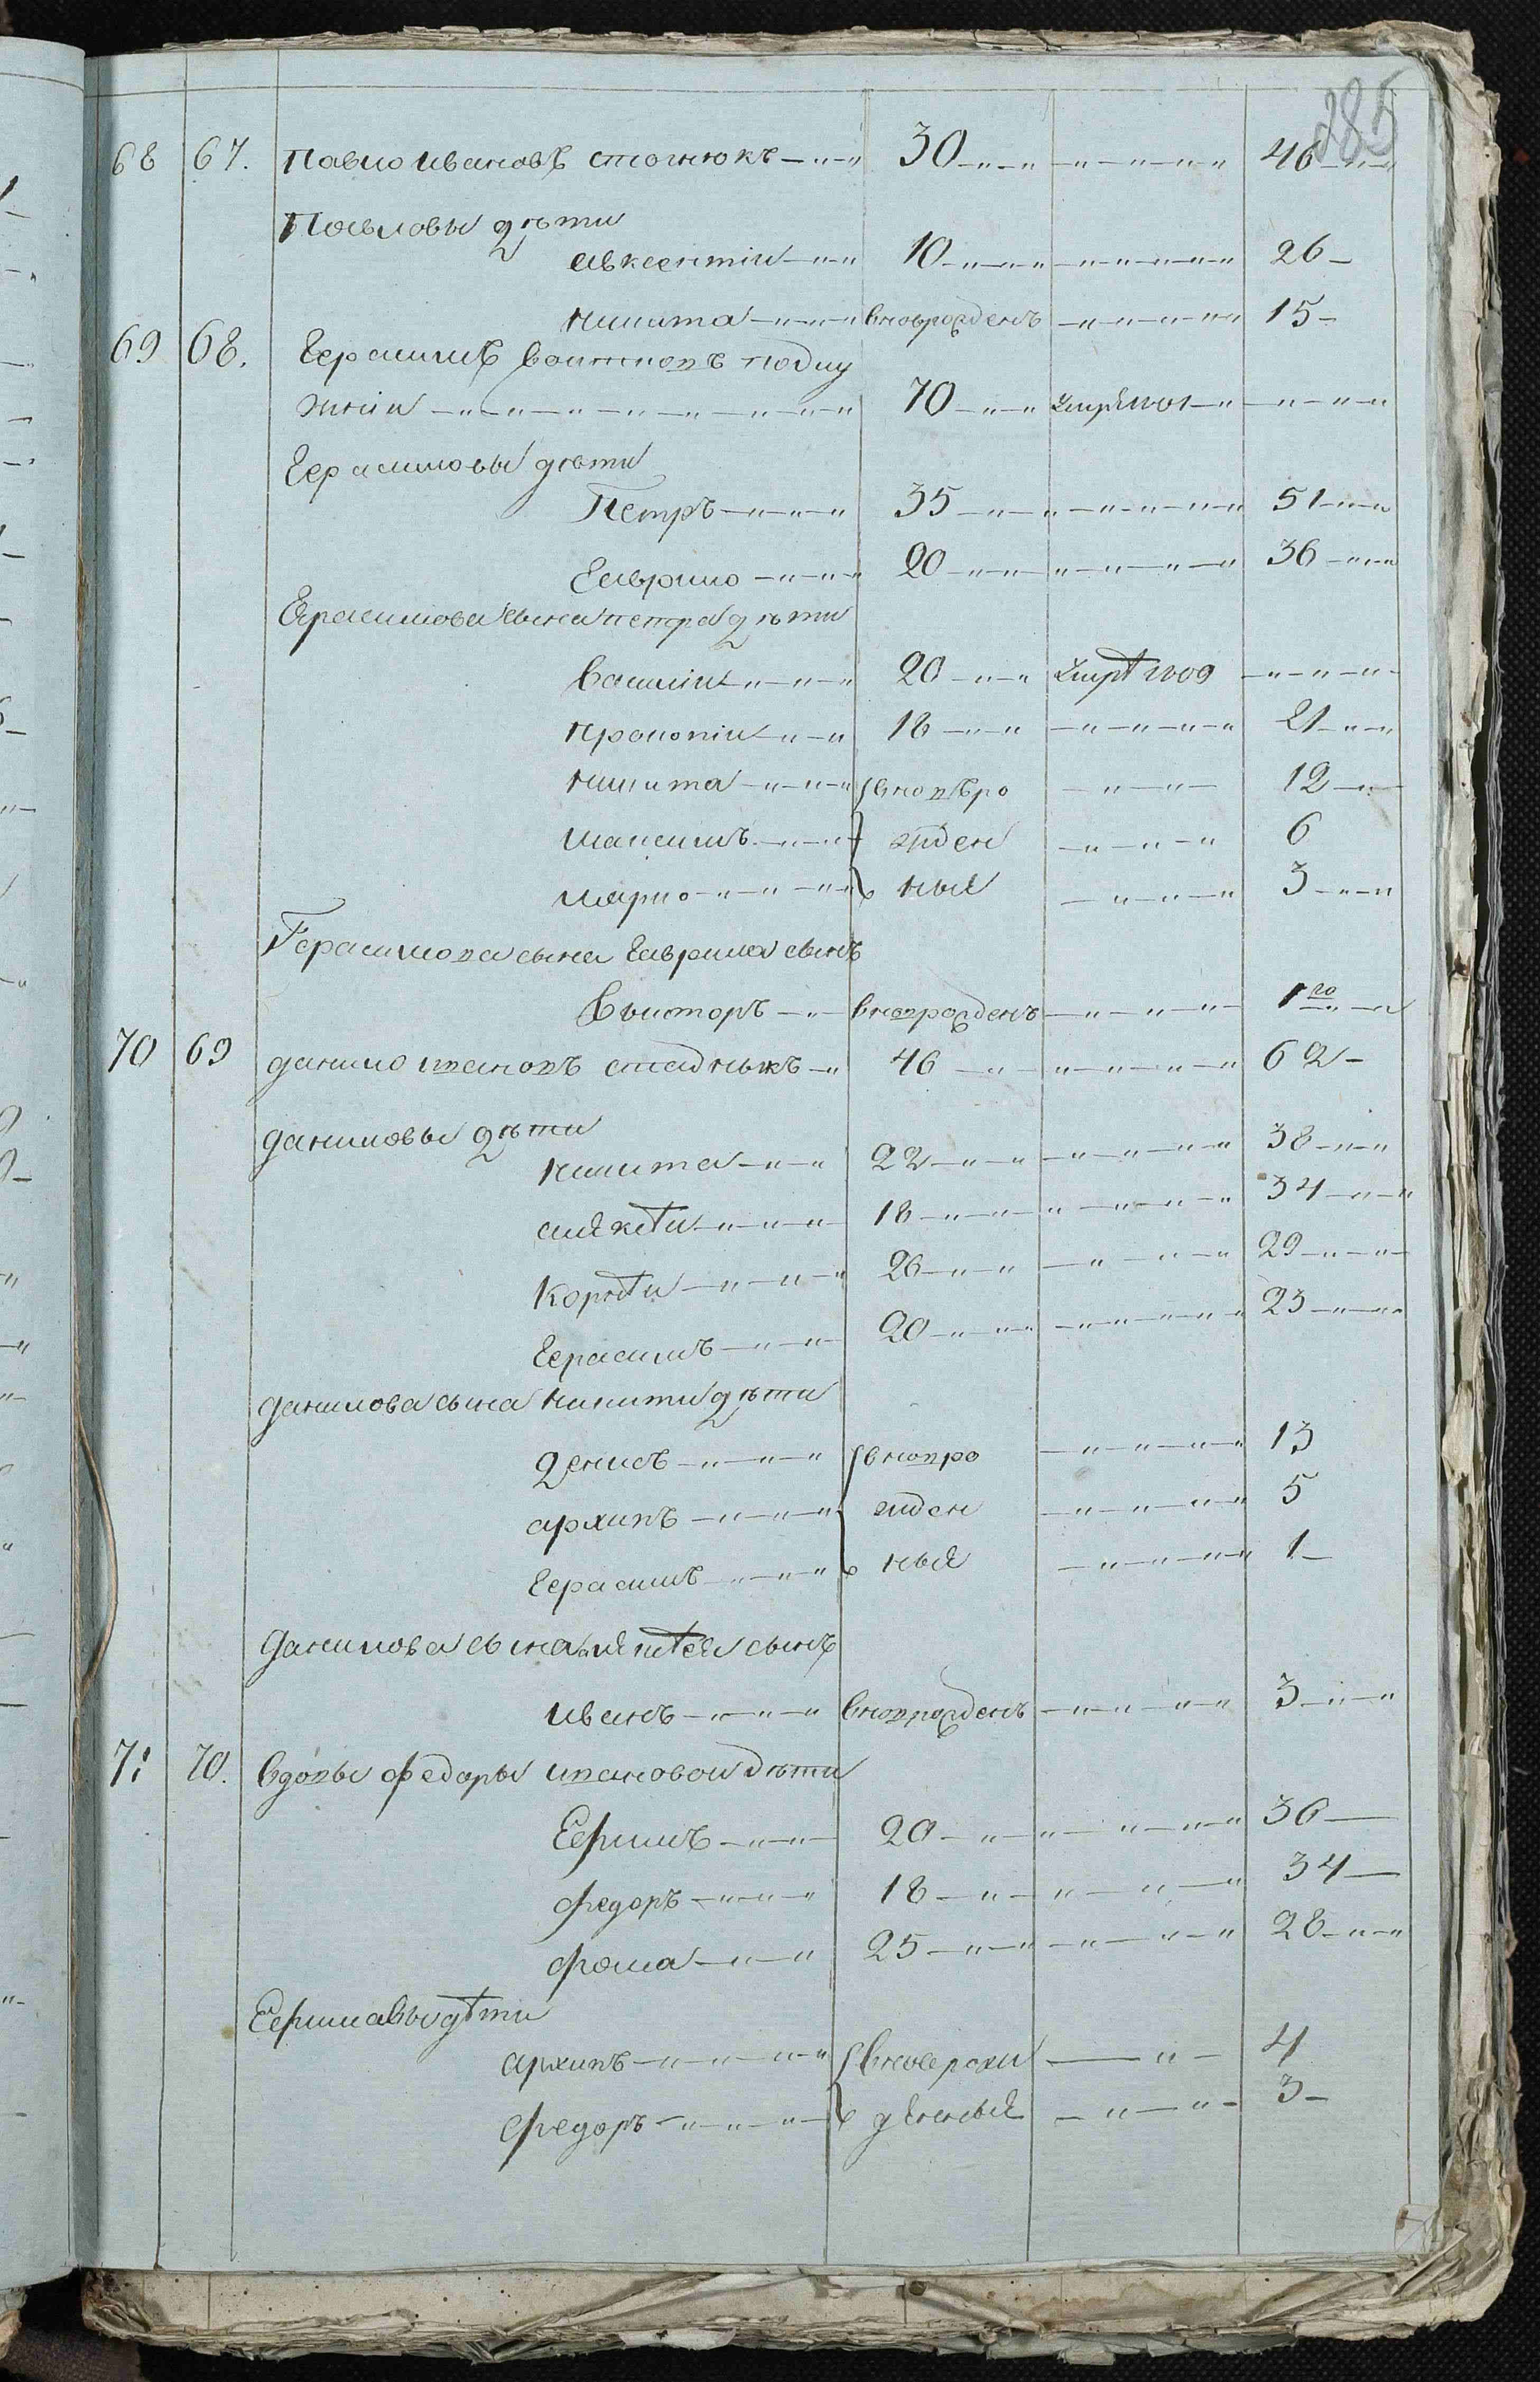 285
68 67. Павло Ивановъ стогнюкъ 30 46
Павловы дѣти
авксентіи 10 26
никита вновърожденъ 15
69 68. Герасимъ Воитковъ подлу
жніи 70 умре 1801
Герасимовы дѣти
Петръ 35 51
Гаврило 20 36
Герасимова сына петра дѣти
Василіи 20 умре 1809
прокопіи 18 21
никита вновьро 12
максимъ жден 6
марко ные 3
Герасимова сына Гаврила сынъ
Викторъ вновьрожденъ 1 го
70 69 данило ивановъ стадникъ 46 62
даниловы дѣти
никита 22 38
алексѣи 18 34
корнѣи 26 29
Герасимъ 20 23
данилова сына никити дѣти
денисъ вновро 13
архипъ жден 5
Герасимъ ные 1
данилова сына алексѣя сынъ
иванъ вноврожденъ 3
71 70. вдовы федоры ивановои дѣти
Ефимъ 20 36
федоръ 18 34
фома 25 28
Ефимавы дѣти
архипъ вноверожи 4
федоръ денные 3